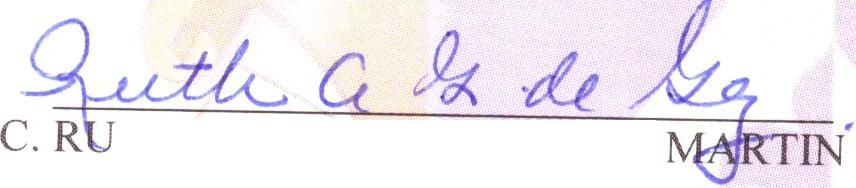 Ruth A G de Gz
C. RU MARTIN